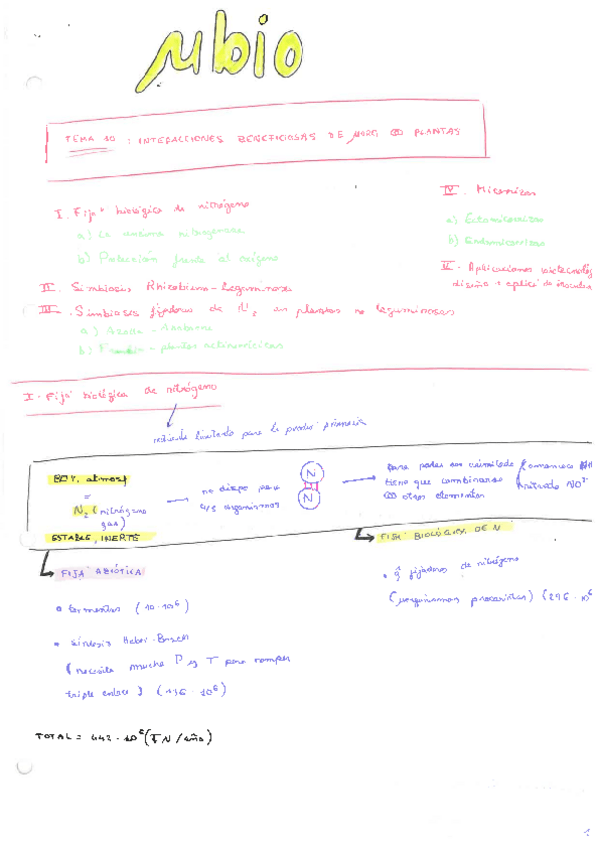 μbio
TEMA 10 : INTERACCIONES BENEFICIOSAS DE μORG PLANTAS
I. Fijaº biológica de nitrógeno
a) La enzima nitrogenasa
b) Protección frente al oxígeno
II. Simbiosis Rhizobium - Leguminosa
III. Simbiosis fijadoras de N2 en plantas no leguminosas
a) Azolla - Anabaena
b) Frankia - plantas actinorrícicas
IV. Micorrizas
a) Ectomicorrizas
b) Endomicorrizas
V. Aplicaciones biotecnológ
diseño e aplic de inoculan
I. Fijaº biológica de nitrógeno
nutriente limitante para la produc primaria
80% atmosf
=
N2 (nitrógeno
gas)
ESTABLE, INERTE
no dispo para
organismos
N
N
Para poder ser asimilado
tiene que combinarse
otros elementos
(amoniaco NH
nitrato NO3-
FIJAº ABIÓTICA
• tormentas (10·10^6)
• síntesis Haber-Bosch
(necesita mucha P y T para romper
triple enlace) (136·10^6)
FIJAº BIOLÓGICA DE N
• fijadores de nitrógeno
(μorganismos procariotas) (296·10^6
TOTAL = 442·10^6 (T N/año)
1